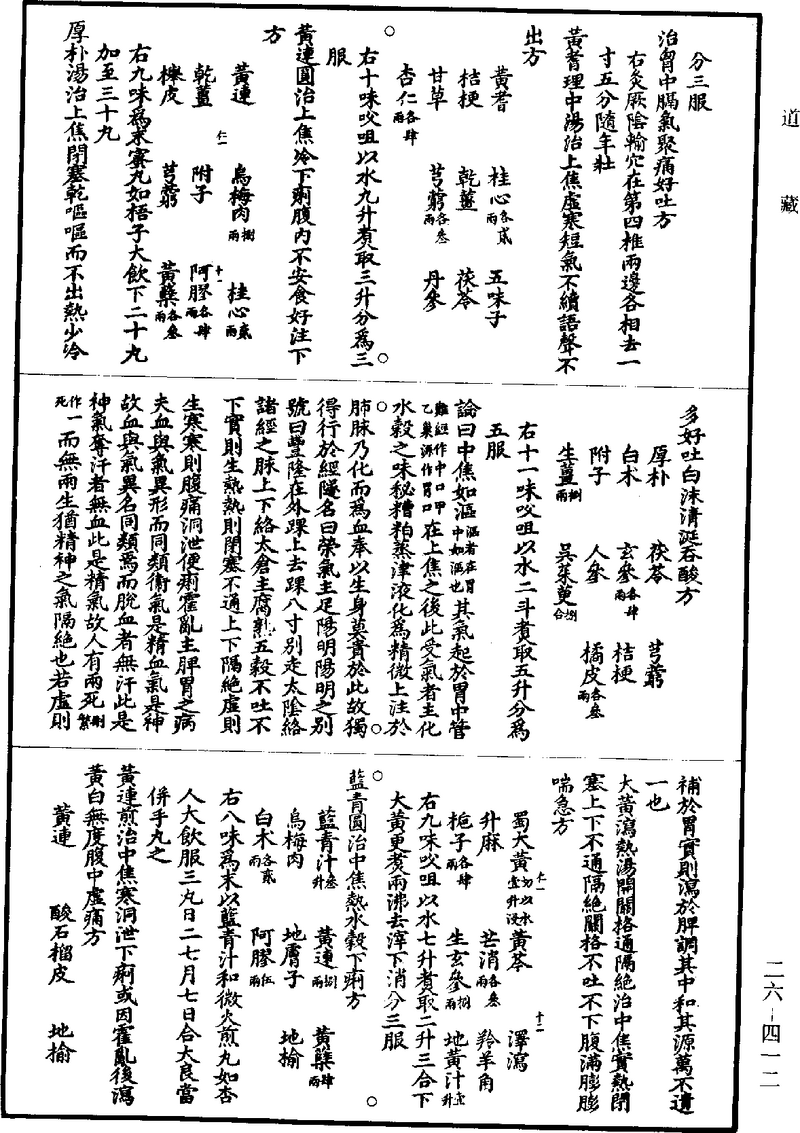 道藏
分三服
治胷中膈氣聚痛好吐方
右灸厥陰輸穴在第四椎兩邊各相去一
寸五分隨年壯
黃耆理中湯治上焦虛寒短氣不續語聲不
出方
黃耆 桂心各貳兩 五味子
桔梗 乾薑 茯苓
甘草 芎藭各叁兩 丹參
杏仁各肆兩
右十味㕮咀以水九升煮取三升分為三
服
黃連圓治上焦冷下痢腹內不安食好注下
方
黃連 烏梅肉捌兩 桂心貳兩
乾薑 附子 阿膠各肆兩
櫸皮 芎藭 黃蘗各叁兩
右九味為末蜜丸如梧子大飲下二十丸
加至三十丸
厚朴湯治上焦閉塞乾嘔嘔而不出熱少冷
多好吐白沫清涎吞酸方
厚朴 茯苓 芎藭
白朮 玄參各肆兩 桔梗
附子 人參 橘皮各叁兩
生薑捌兩 吳茱萸捌合
右十一味㕮咀以水二斗煮取五升分為
五服
論曰中焦如漚漚者在胃中如漚也其氣起於胃中管
難經作中口甲乙巢源作胃口在上焦之後此受氣者主化
水穀之味秘糟粕蒸津液化為精微上注於
肺脉乃化而為血奉以生身莫貴於此故獨
得行於經隧名曰榮氣主足陽明陽明之別
號曰豐隆在外踝上去踝八寸別走太陰絡
諸經之脉上下絡太倉主腐熟五穀不吐不
下實則生熱熱則閉塞不通上下隔絕虛則
生寒寒則腹痛洞泄便痢霍亂主脾胃之病
夫血與氣異形而同類衛氣是精血氣是神
故血與氣異名同類焉而脫血者無汗此是
神氣奪汗者無血此是精氣故人有兩死刪繁
作死一而無兩生猶精神之氣隔絕也若虛則
補於胃實則瀉於脾調其中和其源萬不遺
一也
大黃瀉熱湯開關格通隔絕治中焦實熱閉
塞上下不通隔絕關格不吐不下腹滿膨膨
喘急方
蜀大黃切以水壹升浸 黃芩 澤瀉
升麻 芒消各叁兩 羚羊角
梔子各肆兩 生玄參捌兩 地黃汁壹升
右九味㕮咀以水七升煮取二升三合下
大黃更煮兩沸去滓下消分三服
藍青圓治中焦熱水穀下痢方
藍青汁叁升 黃連捌兩 黃蘗肆兩
烏梅肉 地膚子 地榆
白朮各貳兩 阿膠伍兩
右八味為末以藍青汁和微火煎丸如杏
人大飲服三丸日二七月七日合大良當
併手丸之
黃連煎治中焦寒洞泄下痢或因霍亂後瀉
黃白無度腹中虛痛方
黃連 酸石榴皮 地榆
二六-四一二